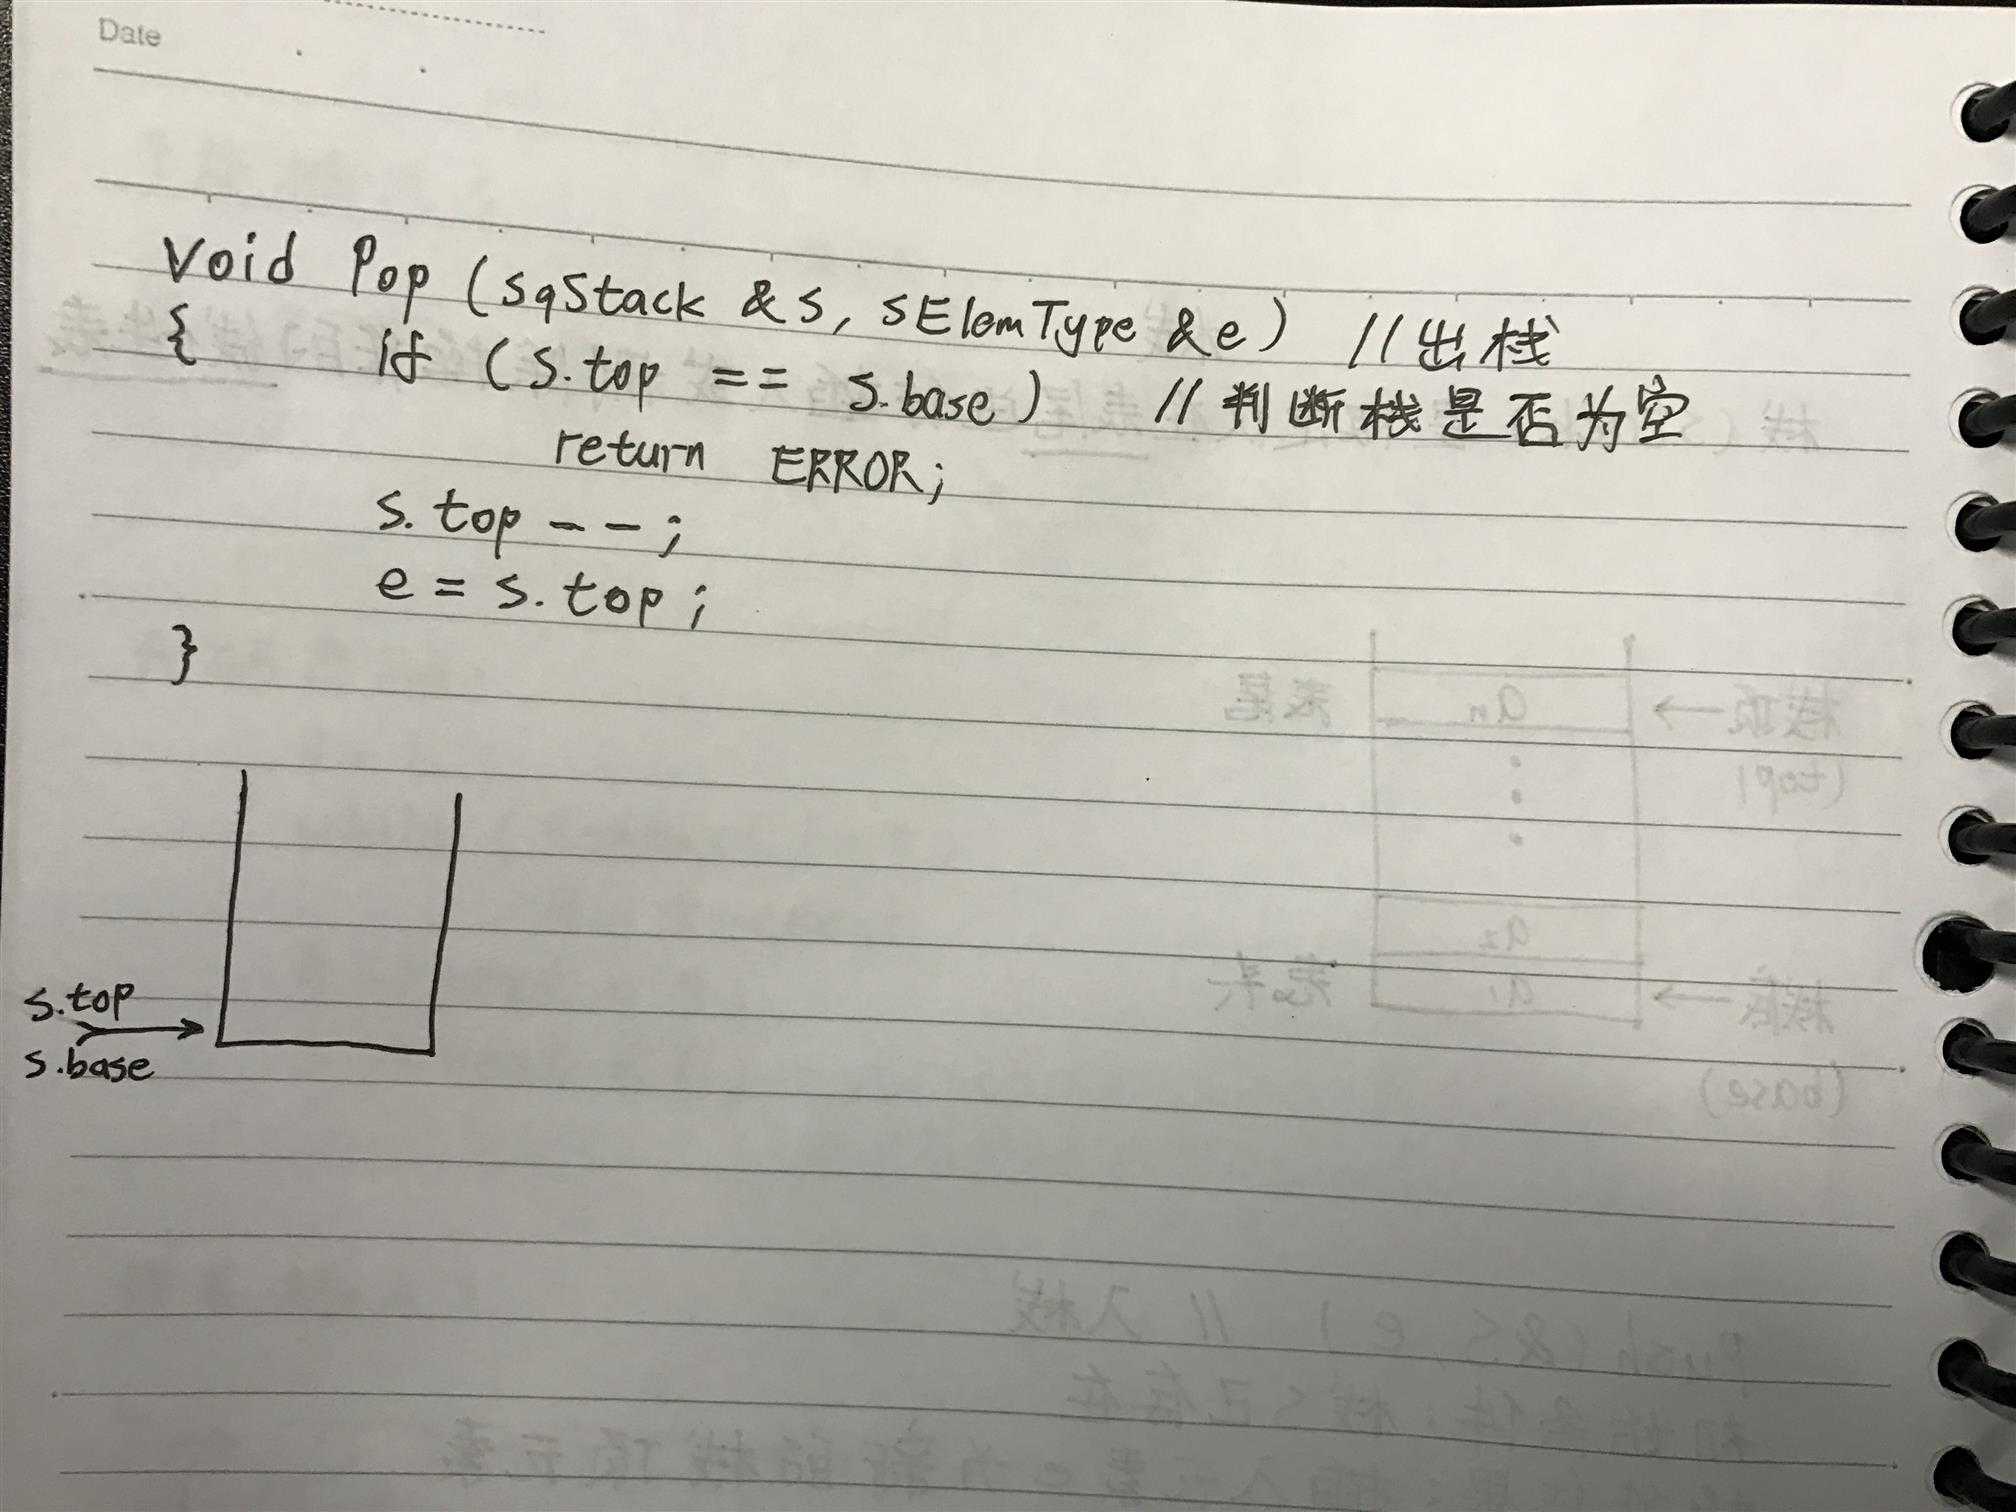 Date
Void Pop (sqStack &s, sElemType &e) //出栈
{ if (s.top == s.base) //判断栈是否为空
return ERROR;
s.top--;
e = s.top;
}
s.top
s.base